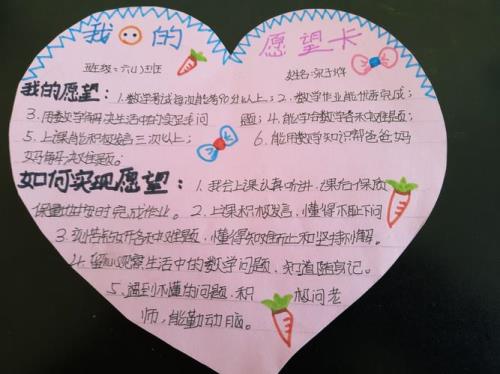 我的愿望卡
班级：六(1)班 姓名：
我的愿望：1.数学考试每次能考90分以上；2.数学作业能优秀完成；
3.用数学知识解决生活中的实际问题；4.能学会数学各种难题；
5.上课能积极发言三次以上；6.能用数学知识帮爸爸妈
妈解决难题。
如何实现愿望：1.我会上课认真听讲，课后保质
保量地按时完成作业。2.上课积极发言，懂得不耻下问
3.刻苦钻研各种难题，懂得知难而上和坚持不懈。
4.留心观察生活中的数学问题，知道随身记。
5.遇到不懂的问题，积极问老
师，能勤动脑。